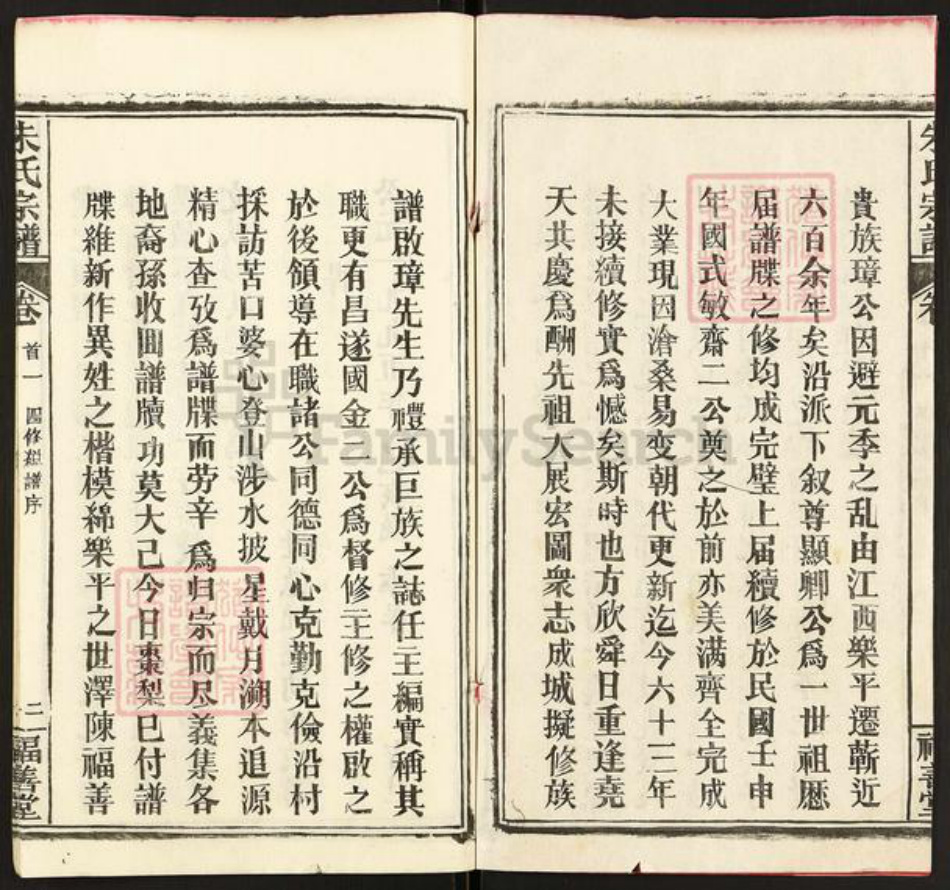 朱氏宗譜
卷
福善堂
貴族璋公因避元季之乱由江西樂平遷蘄近
六百余年矣沿派下叙尊顯卿公爲一世祖歷
届譜牒之修均成完璧上届續修於民國壬申
年國式敏齋二公奠之於前亦美满齊全完成
大業現因滄桑易变朝代更新迄今六十二年
未接續修實爲憾矣斯時也方欣舜日重逢堯
天共慶爲酬先祖大展宏圖衆志成城擬修族
譜啟璋先生乃禮承巨族之誌任主編實稱其
職更有昌遂國金二公爲督修主修之權啟之
於後領導在職諸公同德同心克勤克儉沿村
採訪苦口婆心登山涉水披星戴月溯本追源
精心查攷爲譜牒而劳辛爲归宗而尽義集各
地裔孫收囬譜牘功莫大己今日棗梨已付譜
牒維新作異姓之楷模綿樂平之世澤陳福善
朱氏宗譜
卷
首一
四修祖譜序
二
福善堂
FamilySearch